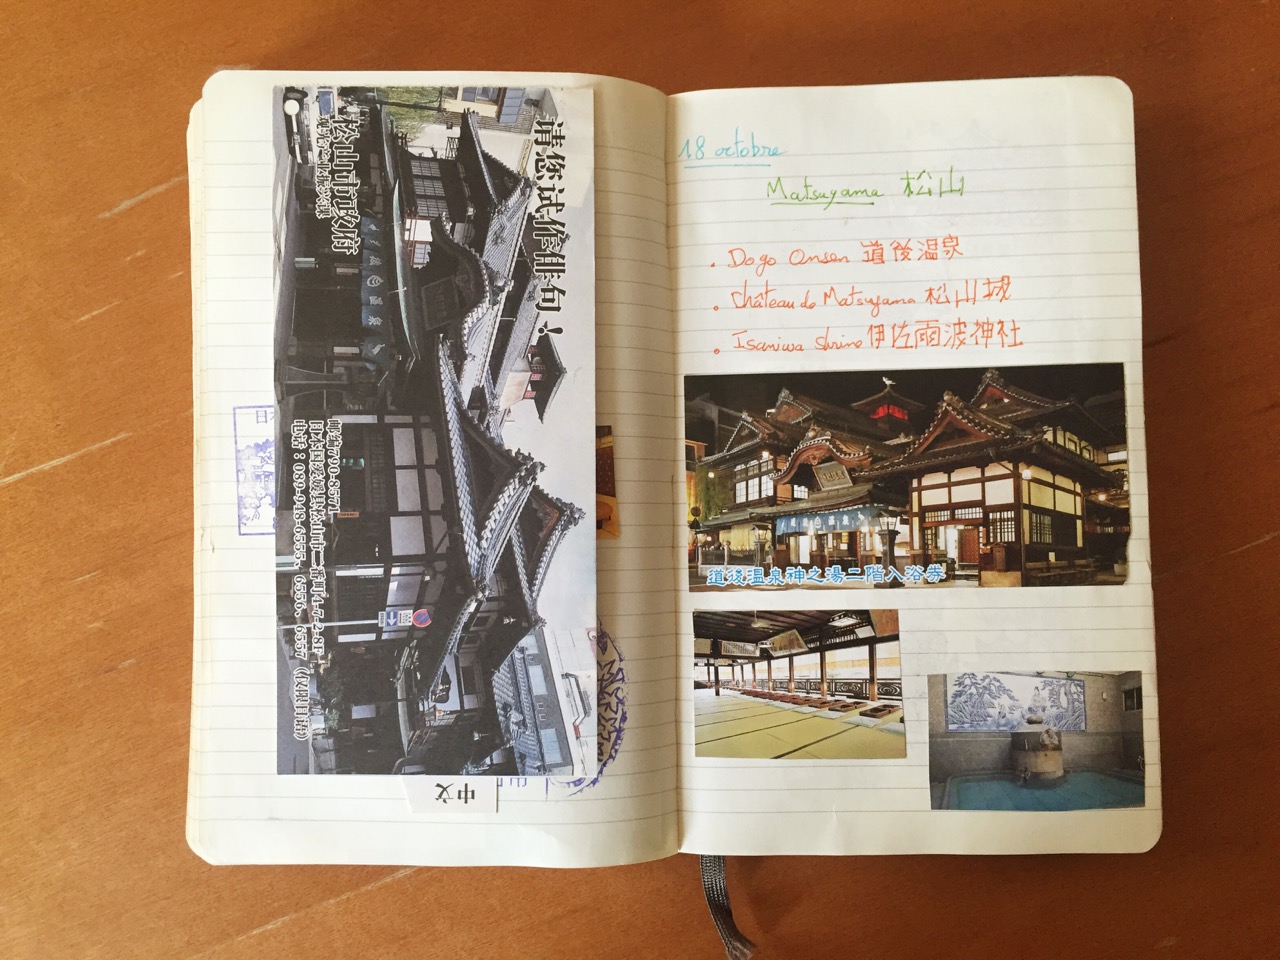 请您试作俳句！
松山市政府
邮编790-8571
日本国爱媛县松山市二番町4-7-2-8F
电话：089-948-6555、6556、6557（仅限日语）
中文
18 octobre
Matsuyama 松山
. Dogo Onsen 道後温泉
. Château de Matsuyama 松山城
. Isaniwa shrine 伊佐雨波神社
道後温泉神之湯二階入浴券